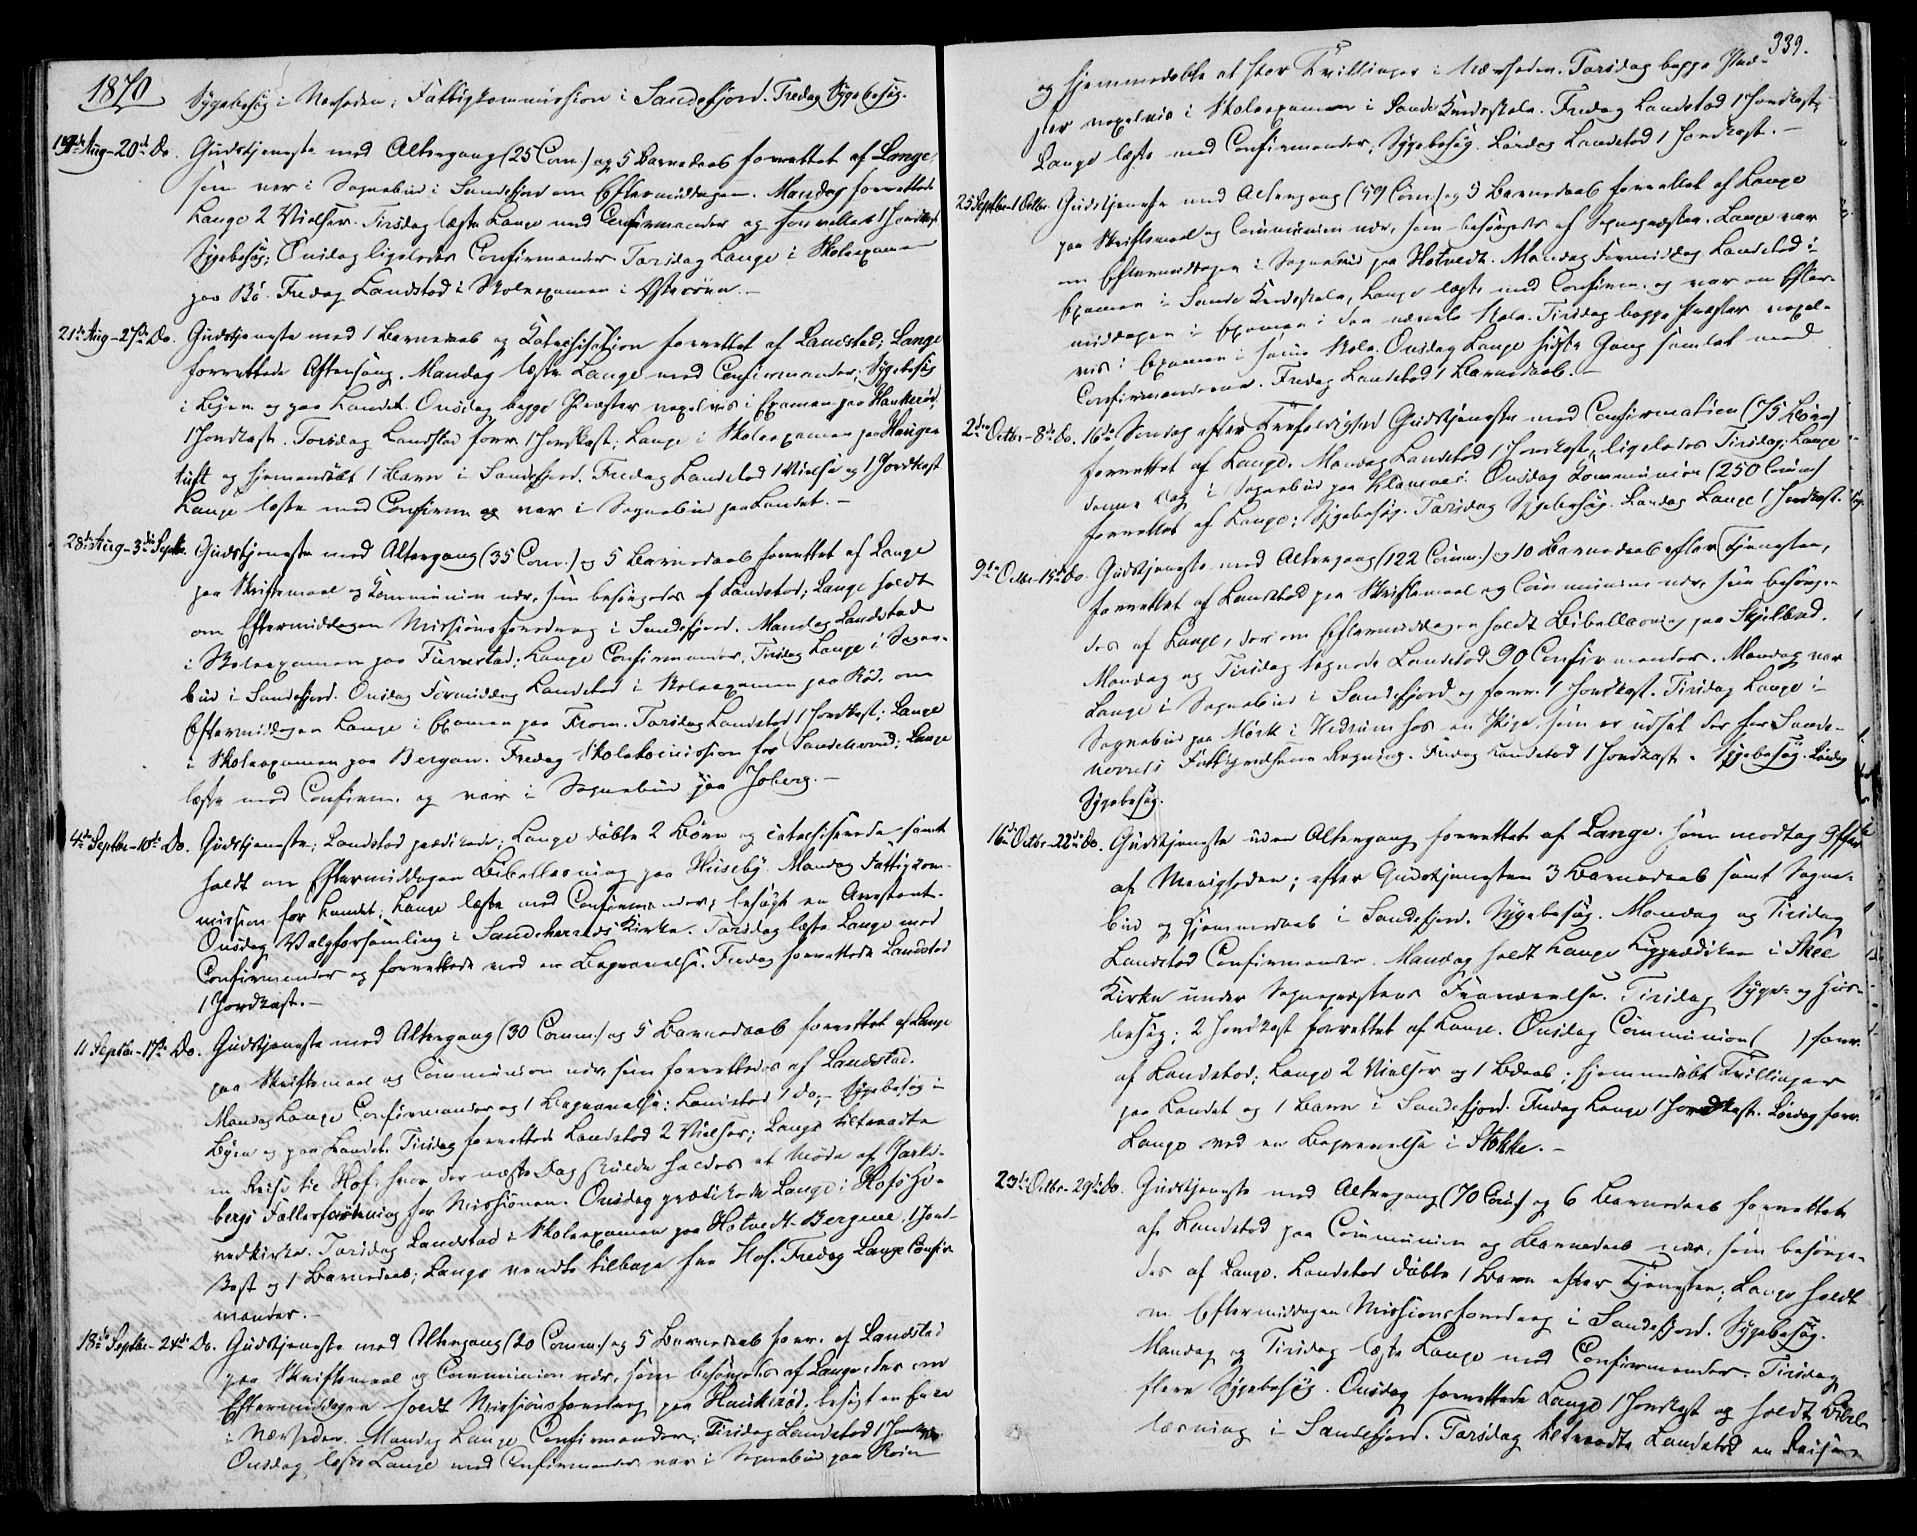 1870
Sygebesøg i Nærheden; Fattigkommission i Sandefjord. Fredag Sygebesøg.
14de Aug - 20de Do. Gudstjeneste med Altergang (25 Com.) og 5 Barnedaab forrettet af Lange,
som var i Sognebud i Sandefjord om Eftermiddagen. Mandag forrettede
Lange 2 Vielser. Tirsdag læste Lange med Confirmander og forrettede 1 Jordkast
Sygebesøg; Onsdag ligeledes Confirmander Torsdag Lange i Skoleexamen
paa Bø. Fredag Landstad i Skoleexamen i Østerøen.-
21de Aug - 27de Do. Gudstjeneste med 1 Barnedaab og Katechisation forrettet af Landstad; Lange
forrettede Aftensang. Mandag læste Lange med Confirmander; Sygebesøg
i Byen og paa Landet. Onsdag begge Præster vexelvis i Examen paa Haukerød,
1 Jordkast. Torsdag Landstad forr. 1 Jordkast; Lange i Skoleexamen paa Haugen
tuft og hjemmedøbt 1 Barn i Sandefjord. Fredag Landstad 1 Vielse og 1 Jordkast
Lange læste med Confirm og var i Sognebud paa Landet.-
28de Aug - 3die Septbr. Gudstjeneste med Altergang (35 Com.) og 5 Barnedaab forrettet af Lange
paa Skriftemaal og Kommunion nær, som besørgedes af Landstad; Lange holdt
om Eftermiddagen Missionsforedrag i Sandefjord. Mandag Landstad
i Skoleexamen paa Furustad; Lange Confirmander, Tirsdag Lange i Sogne-
bud i Sandefjord. Onsdag Formiddag Landstad i Skoleexamen paa Rød, om
Eftermiddagen Lange i Examen paa From. Torsdag Landstad 1 Jordkast; Lange
i Skoleexamen paa Bergan. Fredag Skolekomission for Sandeherred; Lange
læste med Confirm. og var i Sognebud paa Joberg.-
4de Septbr - 10de Do. Gudstjeneste; Landstad prædikede; Lange døbte 2 Børn og catechiserede samt
holdt om Eftermiddagen Bibellæsning paa Huseby. Mandag Fattigkom-
mission for Landet; Lange læste med Confirmander; besøgt en Arrestant.
Onsdag Valgforsamling i Sandeherreds Kirke. Torsdag læste Lange med
Confirmander og forrettede ved en Begravelse. Fredag forrettede Landstad
1 Jordkast.-
11 Septbr - 17de Do. Gudstjeneste med Altergang (30 Comm.) og 5 Barnedaab forrettet af Lange
paa Skriftemaal og Communion nær som forrettedes af Landstad.
Mandag Lange Confirmander og 1 Begravelse; Landstad 1 do; Sygebesøg i
Byen og paa Landet. Tirsdag forrettede Landstad 2 Vielser; Lange tiltraadte
en Reise til Hof, hvor der næste Dag skulde holdes et Møde af Jarls-
bergs Fællesforening for Missionen. Onsdag prædikede Lange i Hofs Ho-
vedkirke. Torsdag Landstad i Skoleexamen paa Hotvedt-Bergene, 1 Jord-
kast og 1 Barnedaab; Lange vendte tilbage fra Hof. Fredag Lange Confir-
mander.-
18de Septbr - 24de Do. Gudstjeneste med Altergang (20 Comm.) og 5 Barnedaab forr. af Landstad
paa Skriftemaal og Communion nær, som besørgedes af Lange, der om
Eftermiddagen holdt Missionsforedrag paa Haukerød; besøgt en
i Nærheden. Mandag Lange Confirmander; Tirsdag Landstad 1 Jordkast
Onsdag læste Lange med Confirmander var i Sognebud paa
339.
og hjemmedøbte et Par Tvillinger i Nærheden. Torsdag begge Præ-
ster vexelvis i Skoleexamen i Sande Kredsskole. Fredag Landstad 1 Jordkast,
Lange læste med Confirmander, Sygebesøg. Lørdag Landstad 1 Jordkast.-
25 Septbr - 1 Octbr. Gudstjeneste med Altergang (59 Com.) og 5 Barnedaab forrettet af Lange
paa Skriftemaal og Communion nær, som besørgedes af Sognepræsten. Lange var
om Eftermiddagen i Sognebud paa Hotvedt. Mandag Formiddag Landstad i
Examen i Sande Kredsskole, Lange læste med Confirm. og var om Efter-
middagen i Examen i den nævnte Skole. Tirsdag begge Præster vexel-
vis i Examen i samme Skole. Onsdag Lange sidste Gang samlet med
Confirmanderne. Fredag Landstad 1 Barnedaab.-
2den Octbr - 8de Do. 16de Søndag efter Trefoldighed Gudstjeneste med Confirmation (75 Børn)
forrettet af Lange. Mandag Landstad 1 Jordkast, ligeledes Tirsdag; Lange
denne Dag i Sognebud paa Klavenes. Onsdag Kommunion (250 Comm)
forrettet af Lange; Sygebesøg. Torsdag Sygebesøg. Lørdag Lange 1 Jordkast.
9de Octbr - 15de Do. Gudstjeneste med Altergang (122 Comm.) og 10 Barnedaab efter Tjenesten,
forrettet af Landstad paa Skriftemaal og Communion nær, som besørge-
des af Lange, der om Eftermiddagen holdt Bibellæsning paa Skjelbred.
Mandag og Tirsdag tegnede Landstad 90 Confirmander. Mandag var
Lange i Sognebud i Sandefjord og forr. 1 Jordkast. Tirsdag Lange i
Sognebud paa Mørk i Hedrum hos en Pige, som er udsat der for Sande-
herreds Fattigvæsens Regning. Fredag Landstad 1 Jordkast. Sygebesøg. Lørdag
Sygebesøg.
16de Octbr - 22de Do. Gudstjeneste uden Altergang forrettet af Lange, som modtog Offer
af Menigheden; efter Gudstjenesten 3 Barnedaab samt Sogne-
bud og Hjemmedaab i Sandefjord. Sygebesøg. Mandag og Tirsdag
Landstad Confirmander. Mandag holdt Lange Ligprædiken i Skee
Kirke under Sognepræstens Fraværelse. Tirsdag Syge- og Hus-
besøg; 2 Jordkast forrettet af Lange. Onsdag Communion ( ) forr.
af Landstad; Lange 2 Vielser og 1 Bdaab; hjemmedøbt Tvillinger
paa Landet og 1 Barn i Sandefjord. Fredag Lange 1 Jordkast. Lørdag forr.
Lange ved en Begravelse i Stokke.-
23de Octbr - 29de Do. Gudstjeneste med Altergang (70 Com) og 6 Barnedaab forrettet
af Landstad paa Communion og Barnedaab nær, som besørge-
des af Lange. Landstad døbte 1 Barn efter Tjenesten; Lange holdt
om Eftermiddagen Missionsforedrag i Sandefjord. Sygebesøg.
Mandag og Tirsdag læste Lange med Confirmander. Tirsdag
flere Sygebesøg. Onsdag forrettede Lange 1 Jordkast og holdt Bibel-
læsning i Sandefjord. Torsdag tiltraadte Landstad en Reise